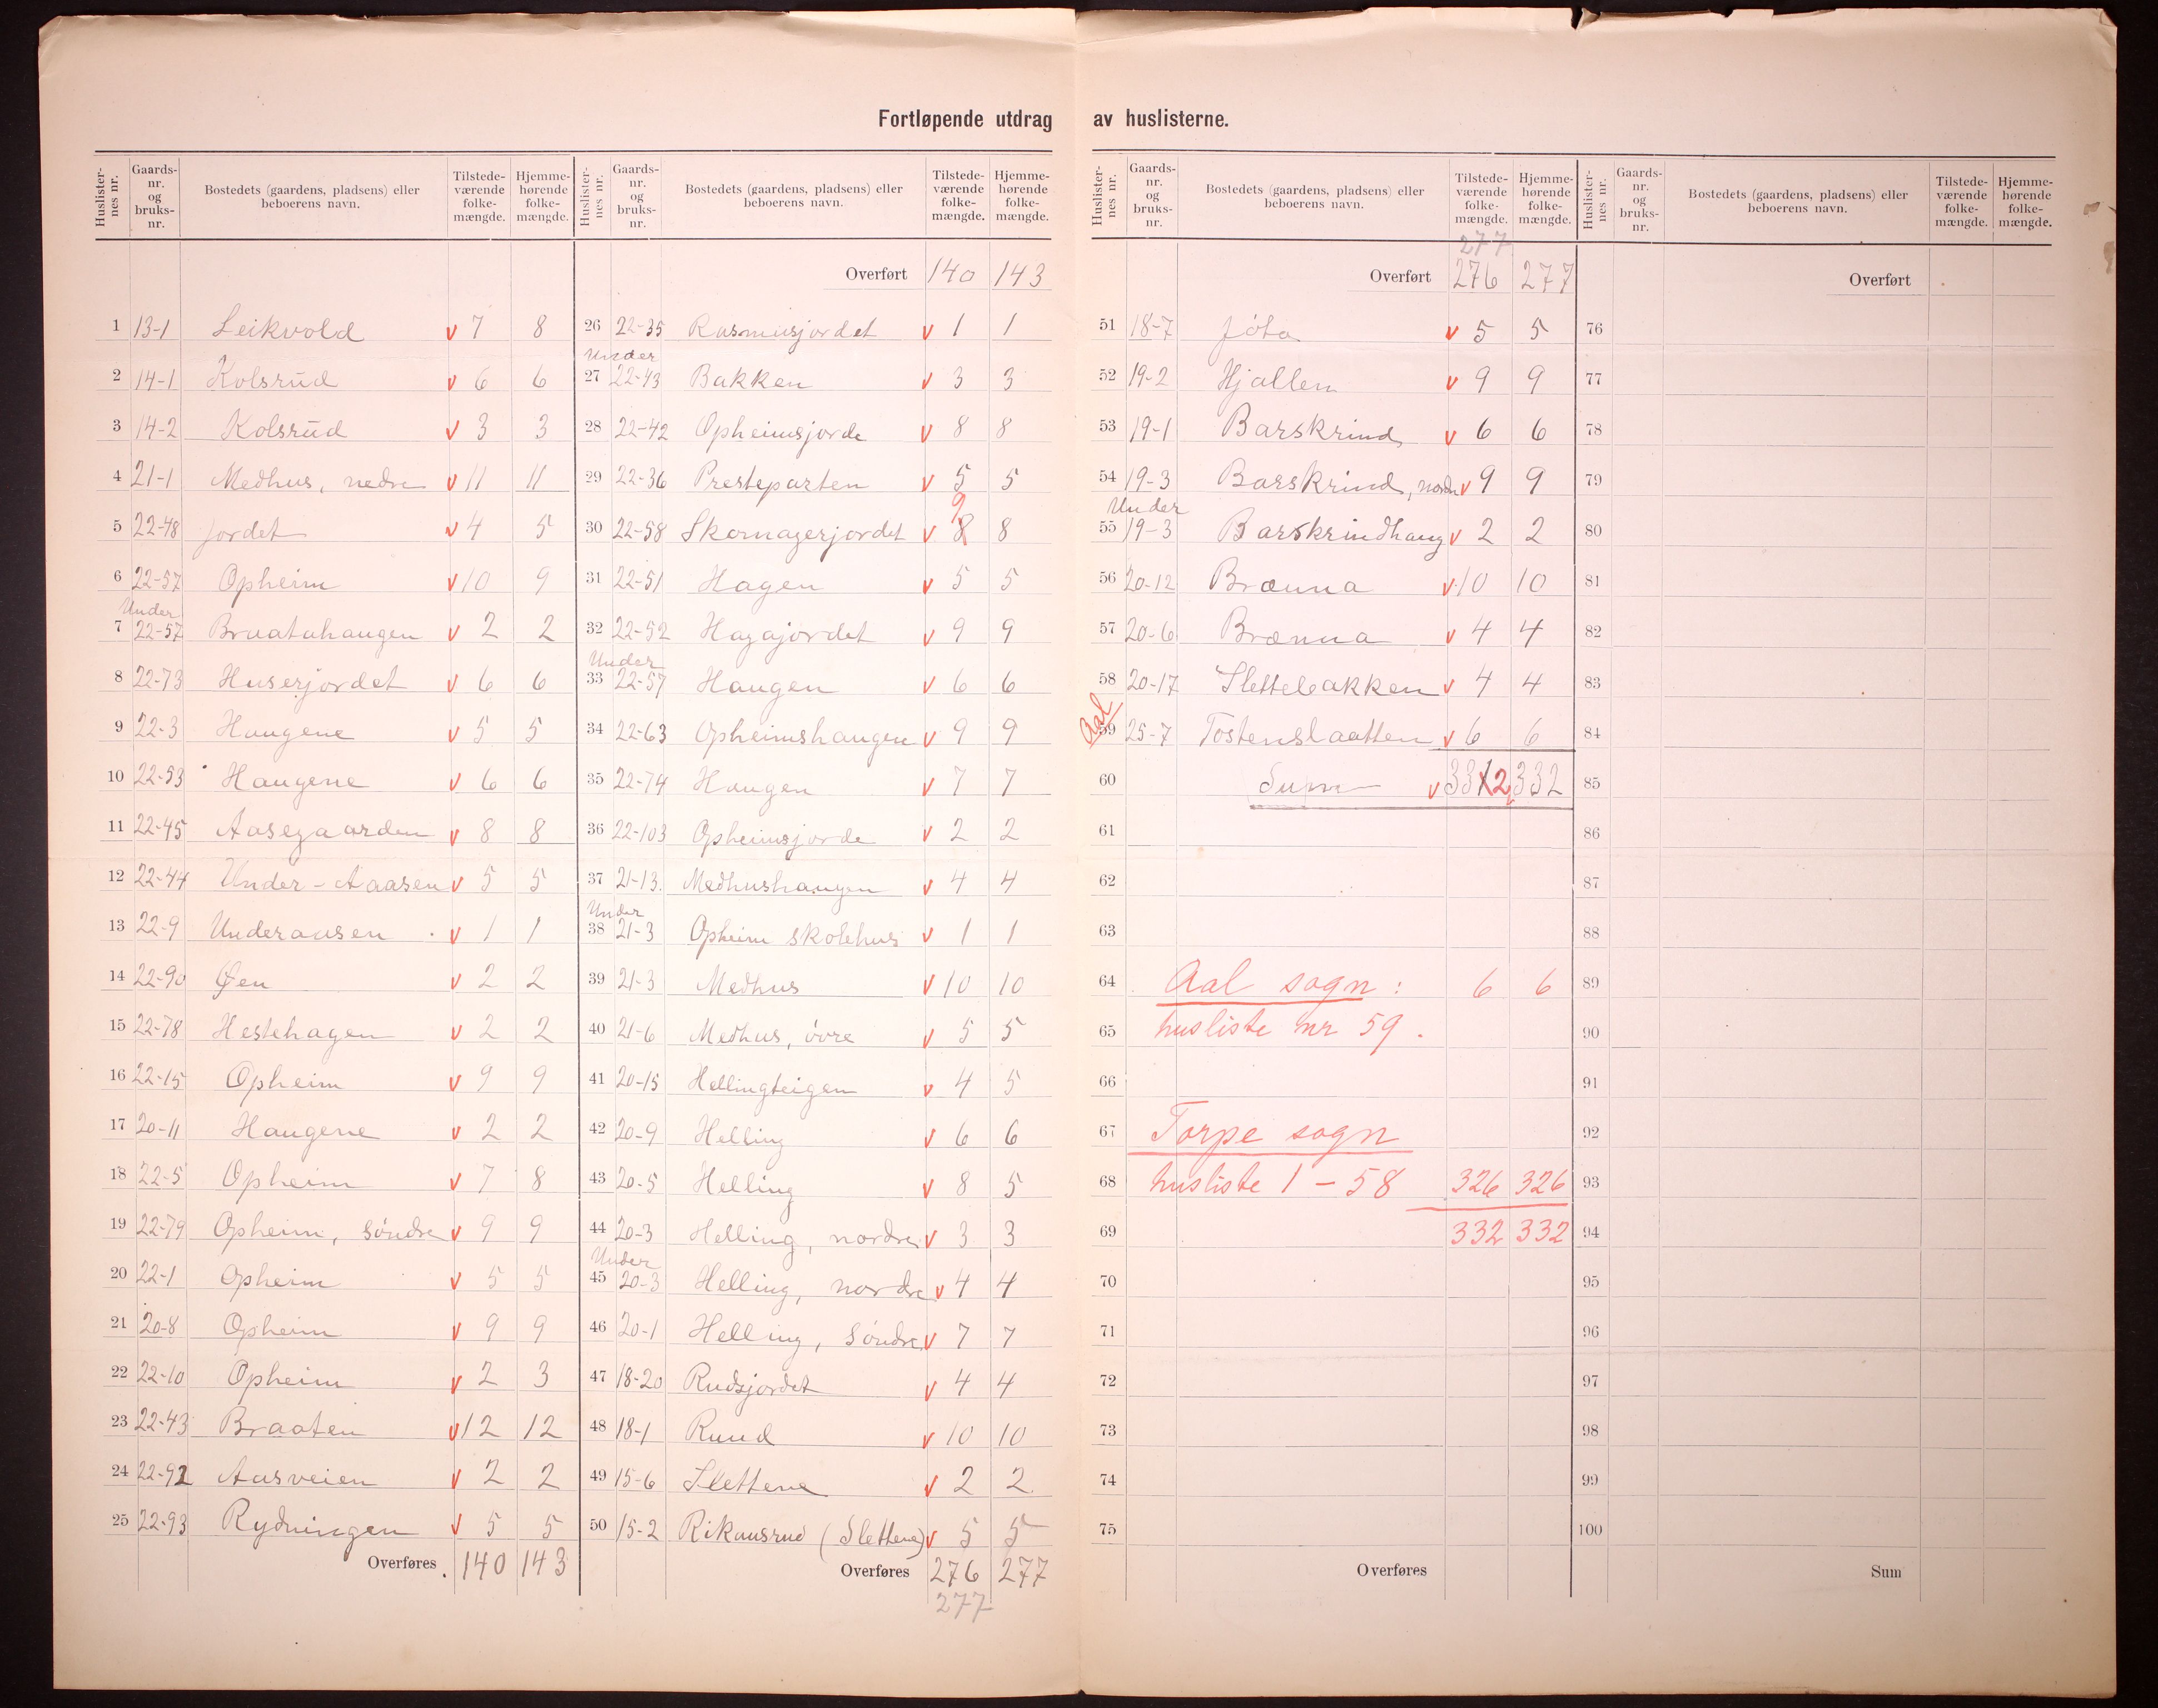 Fortløpende utdrag av huslisterne.
Huslister-nes nr. Gaards-nr. og bruks-nr. Bostedets (gaardens, pladsens) eller beboerens navn. Tilstede-værende folke-mængde. Hjemme-hørende folke-mængde.
1 13-1 Leikvold v 7 8
2 14-1 Kolsrud v 6 6
3 14-2 Kolsrud v 3 3
4 21-1 Medhus, nedre v 11 11
5 22-48 Jordet v 4 5
6 22-57 Opheim v 10 9
Under
7 22-57 Bruatahaugen v 2 2
8 22-73 Huserjordet v 6 6
9 22-3 Haugene v 5 5
10 22-53 Haugene v 6 6
11 22-45 Aasegaarden v 8 8
12 22-44 Under-Aaasen v 5 5
13 22-9 Underaasen v 1 1
14 22-90 Øen v 2 2
15 22-78 Hestehagen v 2 2
16 22-15 Opheim v 9 9
17 20-11 Haugene v 2 2
18 22-5 Opheim v 7 8
19 22-79 Opheim, søndre v 9 9
20 22-1 Opheim v 5 5
21 20-8 Opheim v 9 9
22 22-10 Opheim v 2 3
23 22-43 Braaten v 12 12
24 22-92 Aasveien v 2 2
25 22-93 Rydningen v 5 5
Overføres . 140 143
Huslister-nes nr. Gaards-nr. og bruks-nr. Bostedets (gaardens, pladsens) eller beboerens navn. Tilstede-værende folke-mængde. Hjemme-hørende folke-mængde.
Overført 140 143
26 22-35 Rasmusjordet v 1 1
Under
27 22-43 Bakken v 3 3
28 22-42 Opheimsjorde v 8 8
29 22-36 Presteparten v 5 5
9
30 22-58 Skomagerjordet v 8 8
31 22-51 Hagen v 5 5
32 22-52 Hagajordet v 9 9
Under
33 22-57 Haugen v 6 6
34 22-63 Opheimshaugen v 9 9
35 22-74 Haugen v 7 7
36 22-103 Opheimsjorde v 2 2
37 21-13. Medhushaugen v 4 4
Under
38 21-3 Opheim skolehus v 1 1
39 21-3 Medhus v 10 10
40 21-6 Medhus, övre v 5 5
41 20-15 Hellingteigen v 4 5
42 20-9 Helling v 6 6
43 20-5 Helling v 8 5
44 20-3 Helling, nordre v 3 3
Under
45 20-3 Helling, nordre v 4 4
46 20-1 Helling, søndre v 7 7
47 18-20 Rudsjordet v 4 4
48 18-1 Ruud v 10 10
49 15-6 Slettene v 2 2
50 15-2 Rikansrud (Slettene) v 5 5
Overføres 276 277
277
Huslister-nes nr. Gaards-nr. og bruks-nr. Bostedets (gaardens, pladsens) eller beboerens navn. Tilstede-værende folke-mængde. Hjemme-hørende folke-mængde.
277
Overført 276 277
51 18-7 Jóta v 5 5
52 19-2 Hjallen v 9 9
53 19-1 Barskrind v 6 6
54 19-3 Barskrind, nordre v 9 9
Under
55 19-3 Barskrindhaug v 2 2
56 20-12 Brænna v 10 10
57 20-6 Brænna v 4 4
58 20-17 Slettebakken v 4 4
Aal
59 25-7 Tostenslaatten v 6 6
60 Sum v 3312 332
61
62
63
64 Aal sogn : 6 6
65 husliste nr 59.
66
67 Torpe sogn
68 husliste 1 - 58 326 326
69 332 332
70
71
72
73
74
75
Overføres
Huslister-nes nr. Gaards-nr. og bruks-nr. Bostedets (gaardens, pladsens) eller beboerens navn. Tilstede-værende folke-mængde. Hjemme-hørende folke-mængde.
Overført
76
77
78
79
80
81
82
83
84
85
86
87
88
89
90
91
92
93
94
95
96
97
98
99
100
Sum